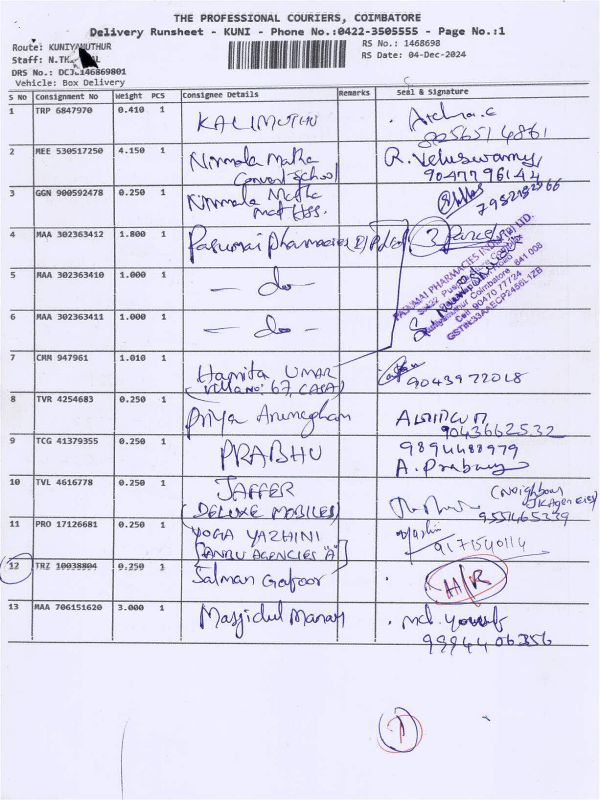 THE PROFESSIONAL COURIERS, COIMBATORE
Delivery Runsheet - KUNI - Phone No.:0422-3505555 - Page No.:1
Route: KUNIYAMUTHUR
RS No.: 1468698
Staff: N.TK
RS Date: 04-Dec-2024
DRS No.: DCJL146869801
Vehicle: Box Delivery
S No Consignment No Weight PCS Consignee Details Remarks Seal & Signature
1 TRP 6847970 0.410 1 KALIMUTHU
8056514861
2 MEE 530517250 4.150 1 Nirmala Matha R. Veluswamy
Convent School 9047796144
3 GGN 900592478 0.250 1 Nirmala Matha
Mat HSS.
4 MAA 302363412 1.800 1 Pasumai Pharmacies (I) P Ltd 3 Parcel
PASUMAI PHARMACIES INDIA (P) LTD.
Coimbatore - 641 008
Cell: 90470 77724
GSTIN:33AAECP2456L1ZB
5 MAA 302363410 1.000 1 - do -
6 MAA 302363411 1.000 1 - do -
7 CMM 947961 1.010 1 Hamita UMAR
Villa no: 67, CASA) 9043972018
8 TVR 4254683 0.250 1 Priya Arumugham
9043662532
9 TCG 41379355 0.250 1 PRABHU 9894488979
A. Prabhu
10 TVL 4616778 0.250 1 JAFFER (Neighbour
(DELUXE MOBILES) JK Agencies)
11 PRO 17126681 0.250 1 YOGA YAZHINI
SANBU AGENCIES "A" 9171540114
12 TRZ 10038804 0.250 1 Salman Gafoor H/R
13 MAA 706151620 3.000 1 Masjidul Manar Md. Yousuf
9994406356
1